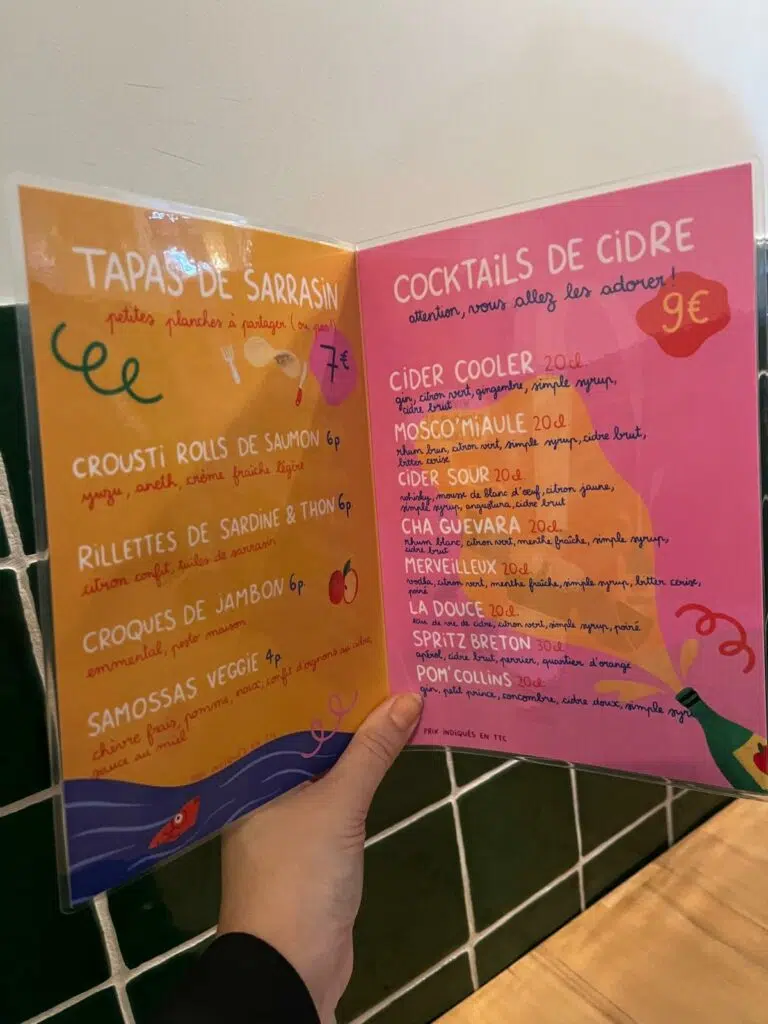 TAPAS DE SARRASIN
petites planches à partager (ou pas)
7€
CROUSTI ROLLS DE SAUMON 6p
yuzu, aneth, crème fraîche légère
RILLETTES DE SARDINE & THON 6p
citron confit, tuiles de sarrasin
CROQUES DE JAMBON 6p
emmental, pesto maison
SAMOSSAS VEGGIE 4p
chèvre frais, pomme, noix, confit d'oignons au cidre,
sauce au miel
COCKTAILS DE CIDRE
attention, vous allez les adorer!
9€
CIDER COOLER 20cl.
gin, citron vert, gingembre, simple syrup,
cidre brut
MOSCO'MIAULE 20cl.
rhum brun, citron vert, simple syrup, cidre brut,
bitter cerise
CIDER SOUR 20cl.
whisky, mousse de blanc d'œuf, citron jaune,
simple syrup, angustura, cidre brut
CHA GUEVARA 20cl.
rhum blanc, citron vert, menthe fraîche, simple syrup,
cidre brut
MERVEILLEUX 20cl.
vodka, citron vert, menthe fraîche, simple syrup, bitter cerise,
poiré
LA DOUCE 20cl.
eau de vie de cidre, citron vert, simple syrup, poiré
SPRITZ BRETON 30cl.
apérol, cidre brut, perrier, quartier d'orange
POM'COLLINS 20cl.
gin, petit prince, concombre, cidre doux, simple syrup
PRIX INDIQUÉS EN TTC